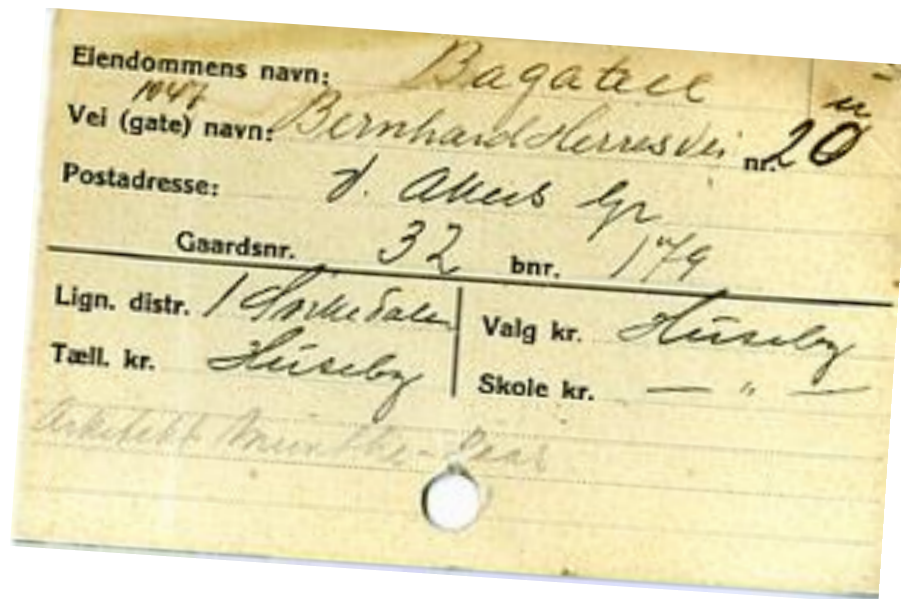 Eiendommens navn: Bagatell
1047
Vei (gate) navn: Bernhard Herresvei nr. 20
Postadresse: V. Akers
Gaardsnr. 32 bnr. 179
Lign. distr. 1 Sørkedalen Valg kr. Huseby
Tæll. kr. Huseby Skole kr. — " —
Arkitekt Munthe-Kaas